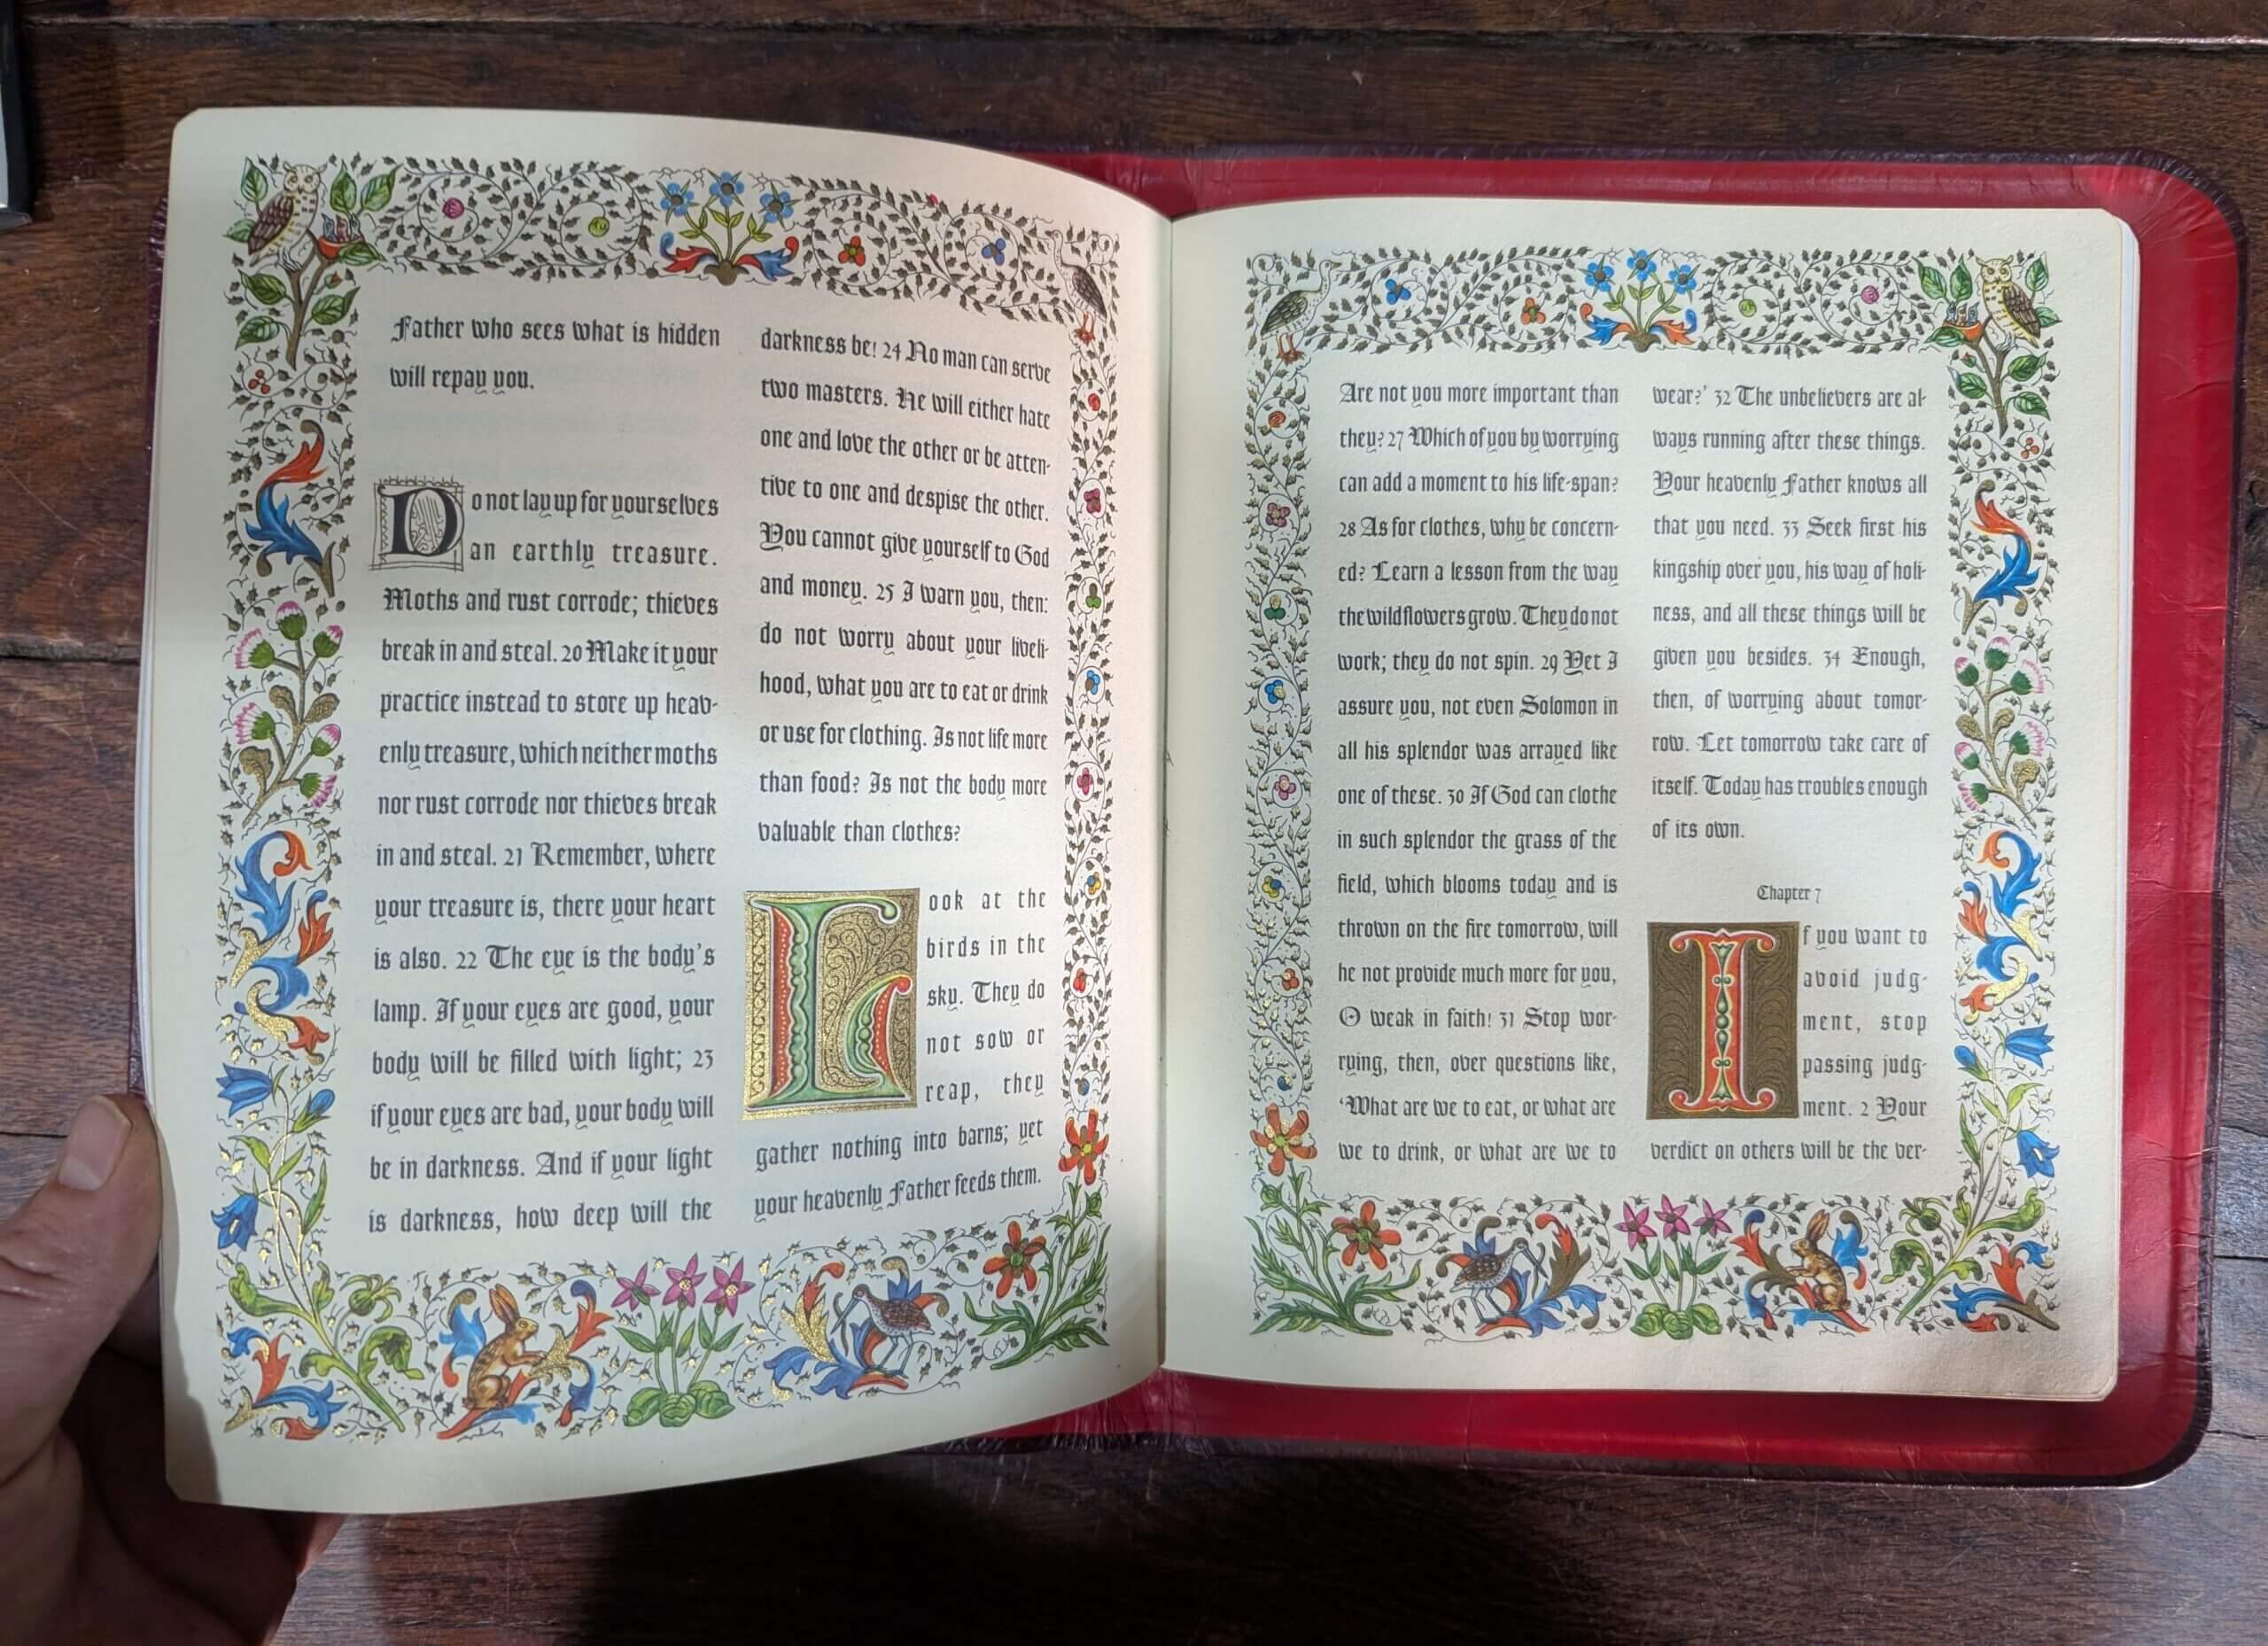 Father who sees what is hidden
will repay you.
Do not lay up for yourselves
an earthly treasure.
Moths and rust corrode; thieves
break in and steal. 20 Make it your
practice instead to store up heav-
enly treasure, which neither moths
nor rust corrode nor thieves break
in and steal. 21 Remember, where
your treasure is, there your heart
is also. 22 The eye is the body's
lamp. If your eyes are good, your
body will be filled with light; 23
if your eyes are bad, your body will
be in darkness. And if your light
is darkness, how deep will the
darkness be! 24 No man can serve
two masters. He will either hate
one and love the other or be atten-
tive to one and despise the other.
You cannot give yourself to God
and money. 25 I warn you, then:
do not worry about your liveli-
hood, what you are to eat or drink
or use for clothing. Is not life more
than food? Is not the body more
valuable than clothes?
Look at the
birds in the
sky. They do
not sow or
reap, they
gather nothing into barns; yet
your heavenly Father feeds them.
Are not you more important than
they? 27 Which of you by worrying
can add a moment to his life-span?
28 As for clothes, why be concern-
ed? Learn a lesson from the way
the wild flowers grow. They do not
work; they do not spin. 29 Yet I
assure you, not even Solomon in
all his splendor was arrayed like
one of these. 30 If God can clothe
in such splendor the grass of the
field, which blooms today and is
thrown on the fire tomorrow, will
he not provide much more for you,
O weak in faith! 31 Stop wor-
rying, then, over questions like,
'What are we to eat, or what are
we to drink, or what are we to
wear?' 32 The unbelievers are al-
ways running after these things.
Your heavenly Father knows all
that you need. 33 Seek first his
kingship over you, his way of holi-
ness, and all these things will be
given you besides. 34 Enough,
then, of worrying about tomor-
row. Let tomorrow take care of
itself. Today has troubles enough
of its own.
Chapter 7
If you want to
avoid judg-
ment, stop
passing judg-
ment. 2 Your
verdict on others will be the ver-